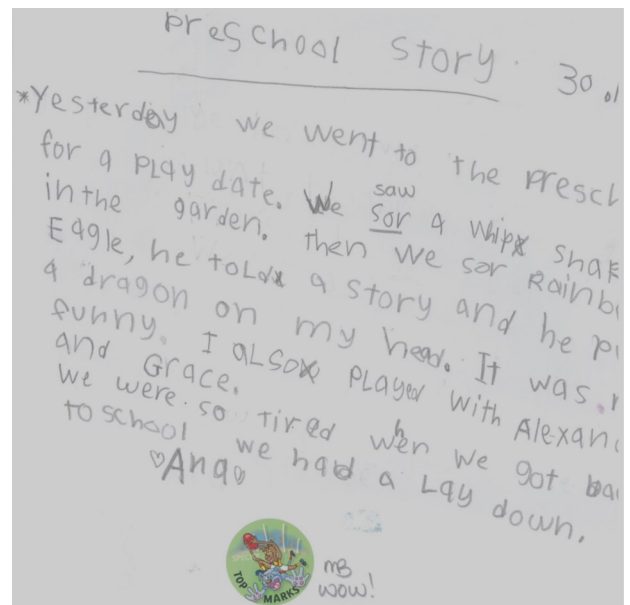 preschool Story. 30.01
*Yesterday we went to the prescl
for a play date. We saw sor a whip snak
in the garden. then we sor Rainb
Eagle, he told a story and he p
a dragon on my head. It was
funny. I also played with Alexan
and Grace.
We were so tired when we got ba
to school we had a Lay down.
♡Ana♡
TOP MARKS
mB
wow!